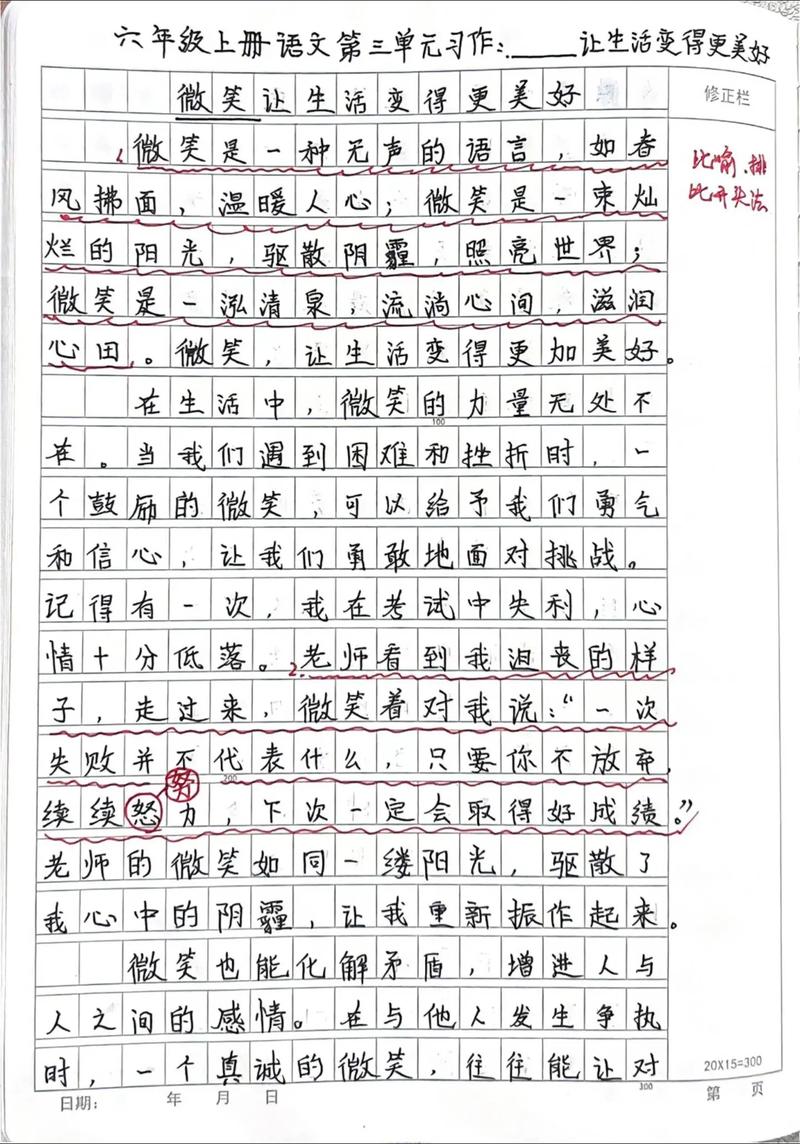 六年级上册语文第三单元习作:_____让生活变得更美好
微笑让生活变得更美好
修正栏
1.微笑是一种无声的语言，如春
比喻、排
比开头法
风拂面，温暖人心；微笑是一束灿
烂的阳光，驱散阴霾，照亮世界；
微笑是一泓清泉，流淌心间，滋润
心田。微笑，让生活变得更加美好。
在生活中，微笑的力量无处不
100
在。当我们遇到困难和挫折时，一
个鼓励的微笑，可以给予我们勇气
和信心，让我们勇敢地面对挑战。
记得有一次，我在考试中失利，心
情十分低落。2.老师看到我沮丧的样
子，走过来，微笑着对我说：“一次
失败并不代表什么，只要你不放弃，
努
200
续续怒力，下次一定会取得好成绩。”
老师的微笑如同一缕阳光，驱散了
我心中的阴霾，让我重新振作起来。
微笑也能化解矛盾，增进人与
人之间的感情。在与他人发生争执
时，一个真诚的微笑，往往能让对
20X15=300
300
日期： 年 月 日
第 页